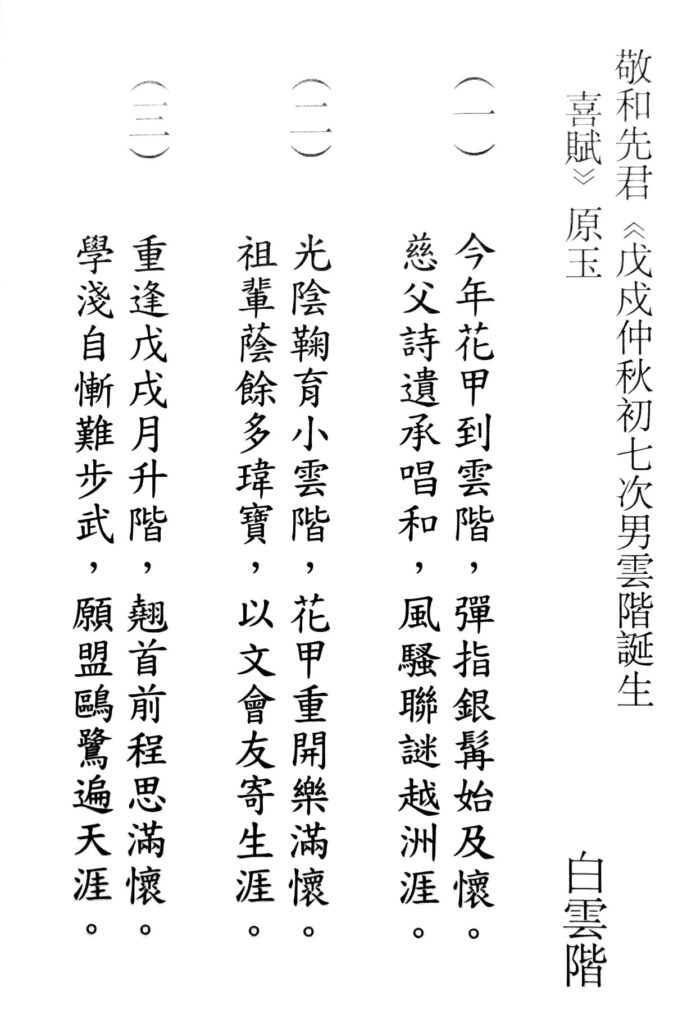 敬和先君《戊戍仲秋初七次男雲階誕生
喜賦》原玉
白雲階
(一)
今年花甲到雲階，彈指銀髯始及懷。
慈父詩遺承唱和，風騷聯謎越洲涯。
(二)
光陰鞠育小雲階，花甲重開樂滿懷。
祖輩蔭餘多瑋寶，以文會友寄生涯。
(三)
重逢戊戌月升階，翹首前程思滿懷。
學淺自慚難步武，願盟鷗鷺遍天涯。